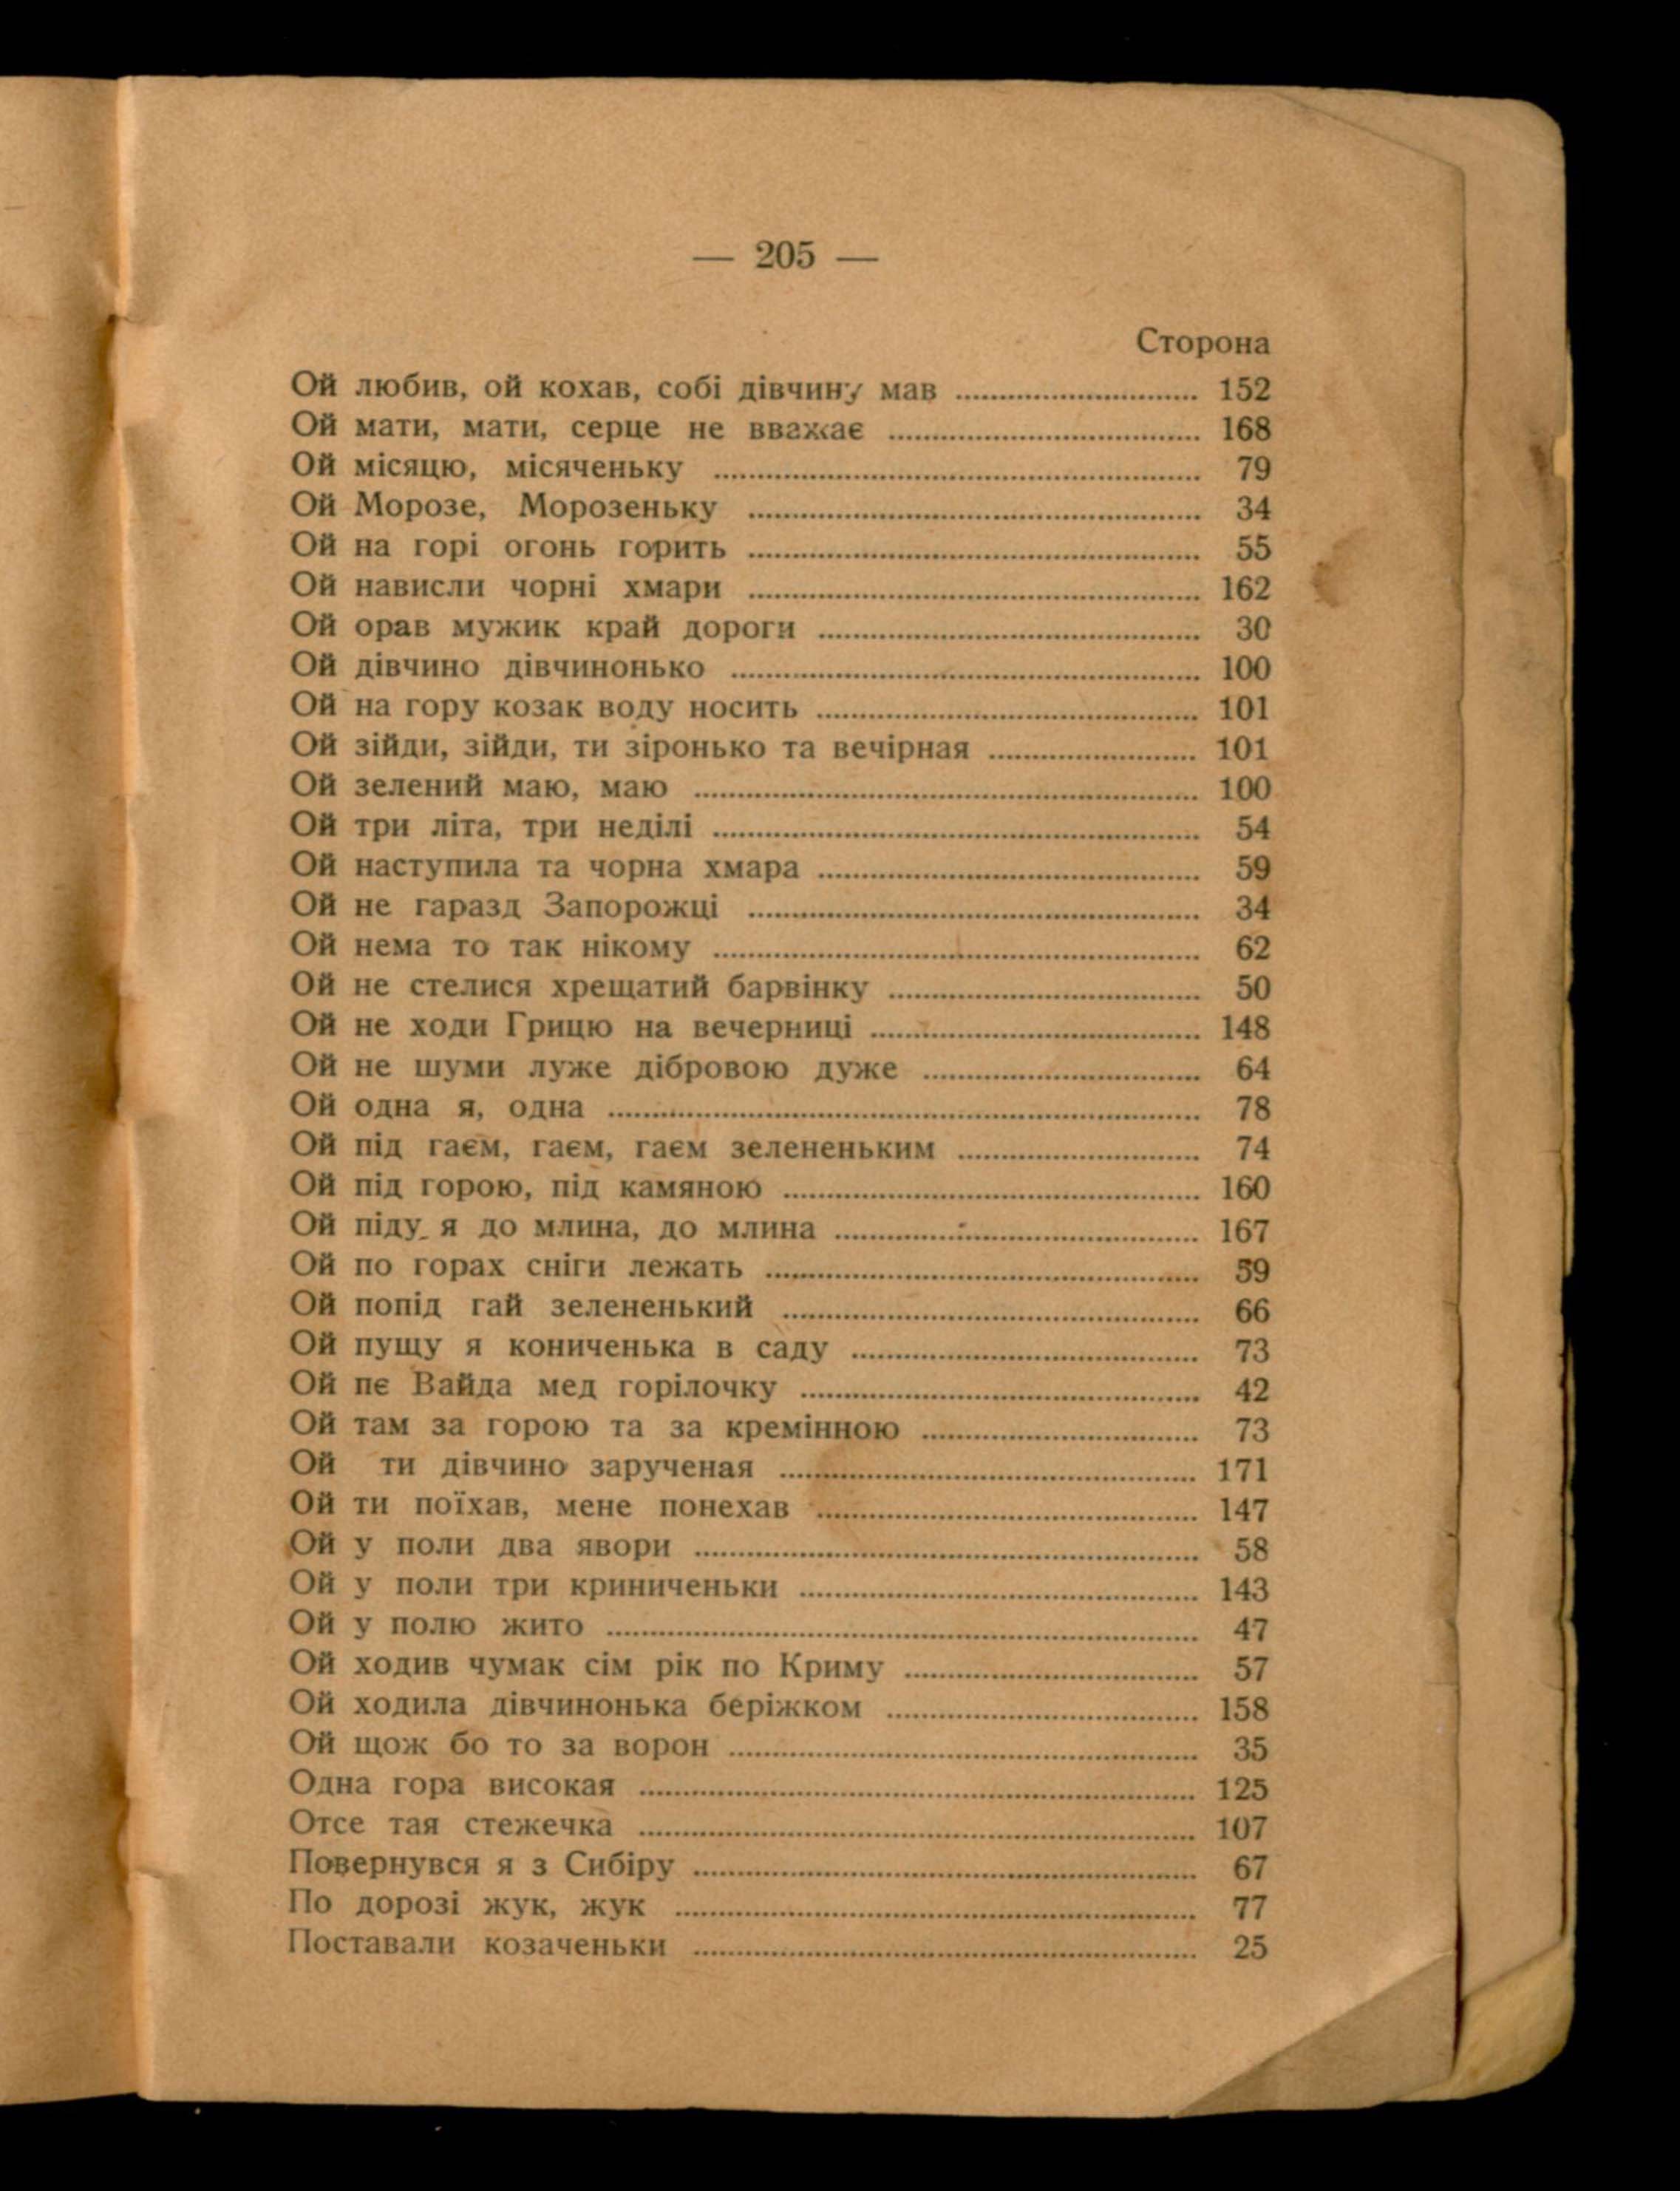 — 205 —
Сторона
Ой любив, ой кохав, собі дівчину мав ........................... 152
Ой мати, мати, серце не вважає ........................... 168
Ой місяцю, місяченьку ........................... 79
Ой Морозе, Морозеньку ........................... 34
Ой на горі огонь горить ........................... 55
Ой нависли чорні хмари ........................... 162
Ой орав мужик край дороги ........................... 30
Ой дівчино дівчинонько ........................... 100
Ой на гору козак воду носить ........................... 101
Ой зійди, зійди, ти зіронько та вечірная ........................... 101
Ой зелений маю, маю ........................... 100
Ой три літа, три неділі ........................... 54
Ой наступила та чорна хмара ........................... 59
Ой не гаразд Запорожці ........................... 34
Ой нема то так нікому ........................... 62
Ой не стелися хрещатий барвінку ........................... 50
Ой не ходи Грицю на вечерниці ........................... 148
Ой не шуми луже дібровою дуже ........................... 64
Ой одна я, одна ........................... 78
Ой під гаєм, гаєм, гаєм зелененьким ........................... 74
Ой під горою, під камяною ........................... 160
Ой піду я до млина, до млина ........................... 167
Ой по горах сніги лежать ........................... 59
Ой попід гай зелененький ........................... 66
Ой пущу я кониченька в саду ........................... 73
Ой пє Вайда мед горілочку ........................... 42
Ой там за горою та за кремінною ........................... 73
Ой ти дівчино зарученая ........................... 171
Ой ти поїхав, мене понехав ........................... 147
Ой у поли два явори ........................... 58
Ой у поли три криниченьки ........................... 143
Ой у полю жито ........................... 47
Ой ходив чумак сім рік по Криму ........................... 57
Ой ходила дівчинонька беріжком ........................... 158
Ой щож бо то за ворон ........................... 35
Одна гора високая ........................... 125
Отсе тая стежечка ........................... 107
Повернувся я з Сибіру ........................... 67
По дорозі жук, жук ........................... 77
Поставали козаченьки ........................... 25